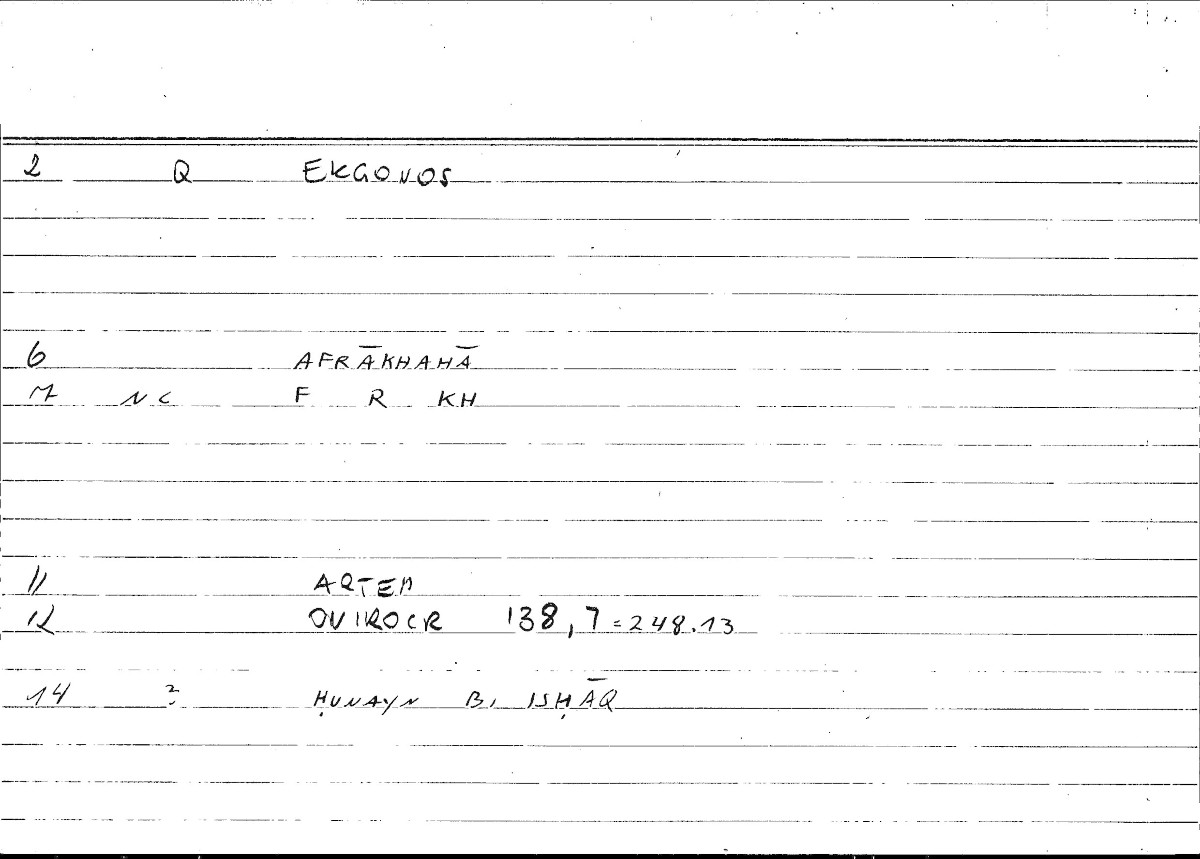 2 Q EKGONOS
6 AFRĀKHAHĀ
7 NC F R KH
11 ARTEM
12 OVIROCR 138,7 = 248.13
14 ? ḤUNAYN B. ISḤĀQ